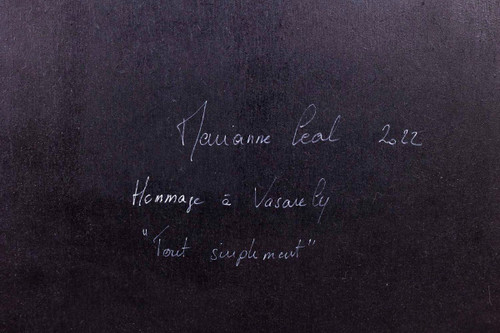 Marianne Leal 2022
Hommage à Vasarely
"Tout simplement"